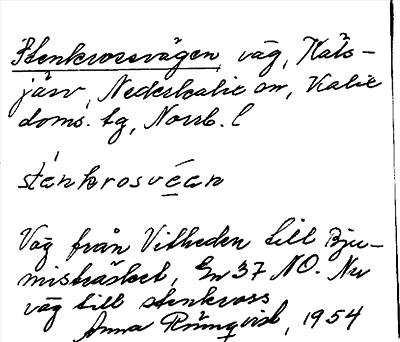 Stenkrossvägen, väg, Räts-
järv, Nederkalix sn, Kalix
doms. tg, Norrb. l
sténkrosvéan
Väg från Vitheden till Bju-
misträsket, En 37 NO. Nu
väg till stenkross
Anna Rönnqvist, 1954